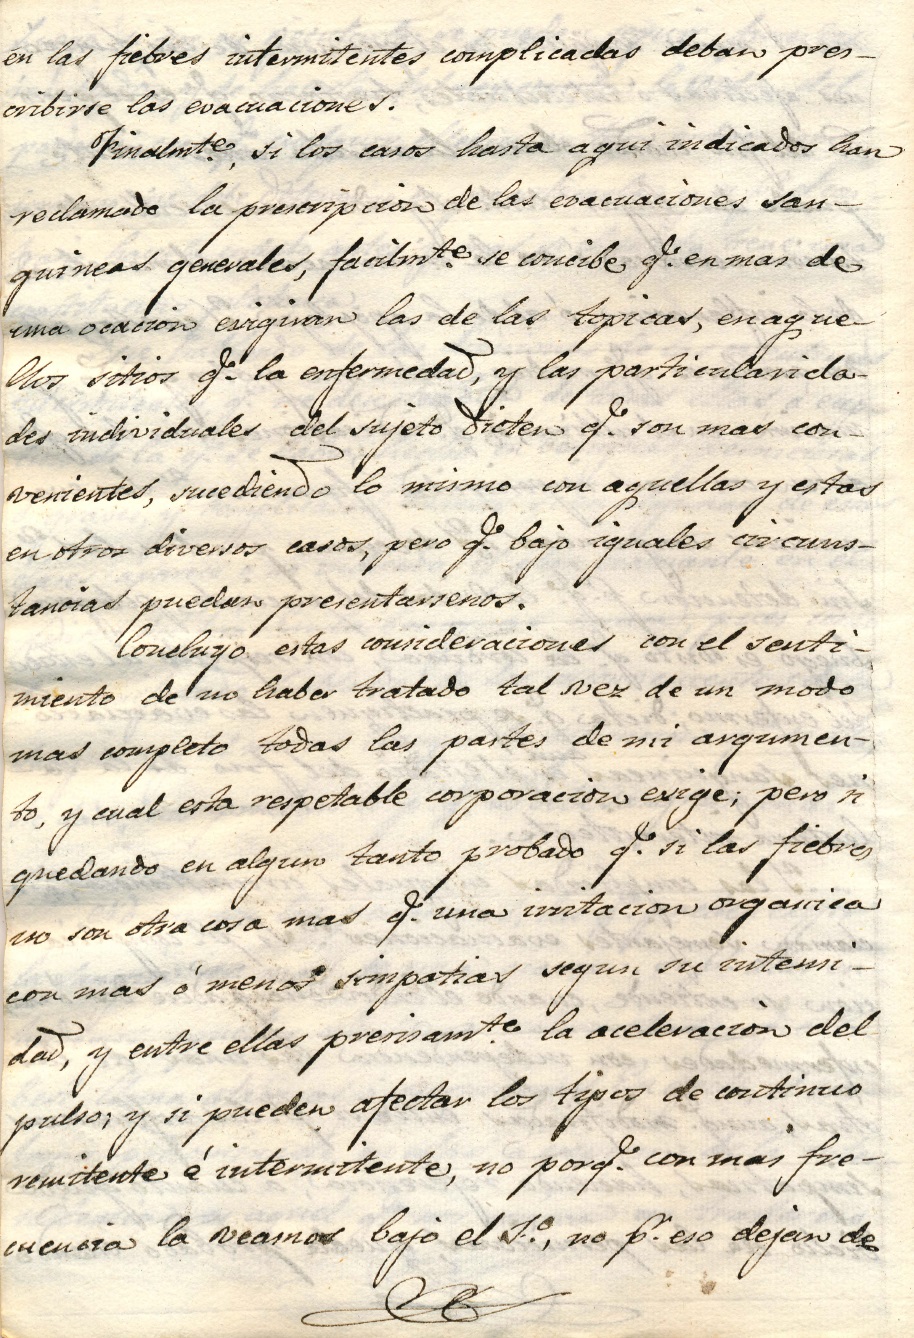 en las fiebres intermitentes complicadas deban pres-
cribirse las evacuaciones.
Finalmte., si los casos hasta aqui indicados han
reclamado la prescripcion de las evacuaciones san-
guineas generales, facilmte. se concibe qe. en mas de
una ocacion exigiran las de las topicas, en aque-
llos sitios qe. la enfermedad, y las particularida-
des individuales del sujeto dicten qe. son mas con-
venientes, sucediendo lo mismo con aquellas y estas
en otros diversos casos, pero qe. bajo iguales circuns-
tancias puedan presentarsenos.
Concluyo estas consideraciones con el senti-
miento de no haber tratado tal vez de un modo
mas completo todas las partes de mi argumen-
to, y cual esta respetable corporacion exige; pero si
quedando en algun tanto probado qe. si las fiebres
no son otra cosa mas qe. una irritacion organica
con mas ó menos simpatias segun su intensi-
dad, y entre ellas precisamte. la aceleracion del
pulso; y si pueden afectar los tipos de continuo
remitente é intermitente, no porqe. con mas fre-
cuencia la veamos bajo el 1.o, no pr. eso dejan de